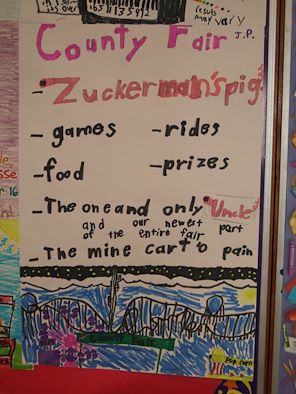 results
may vary
County Fair J.P.
- "Zuckerman's pig"
- games - rides
- food - prizes
- The one and only "Uncle"
and our newest part
of the entire fair
- The mine cart o pain
County Fair
Pop corn